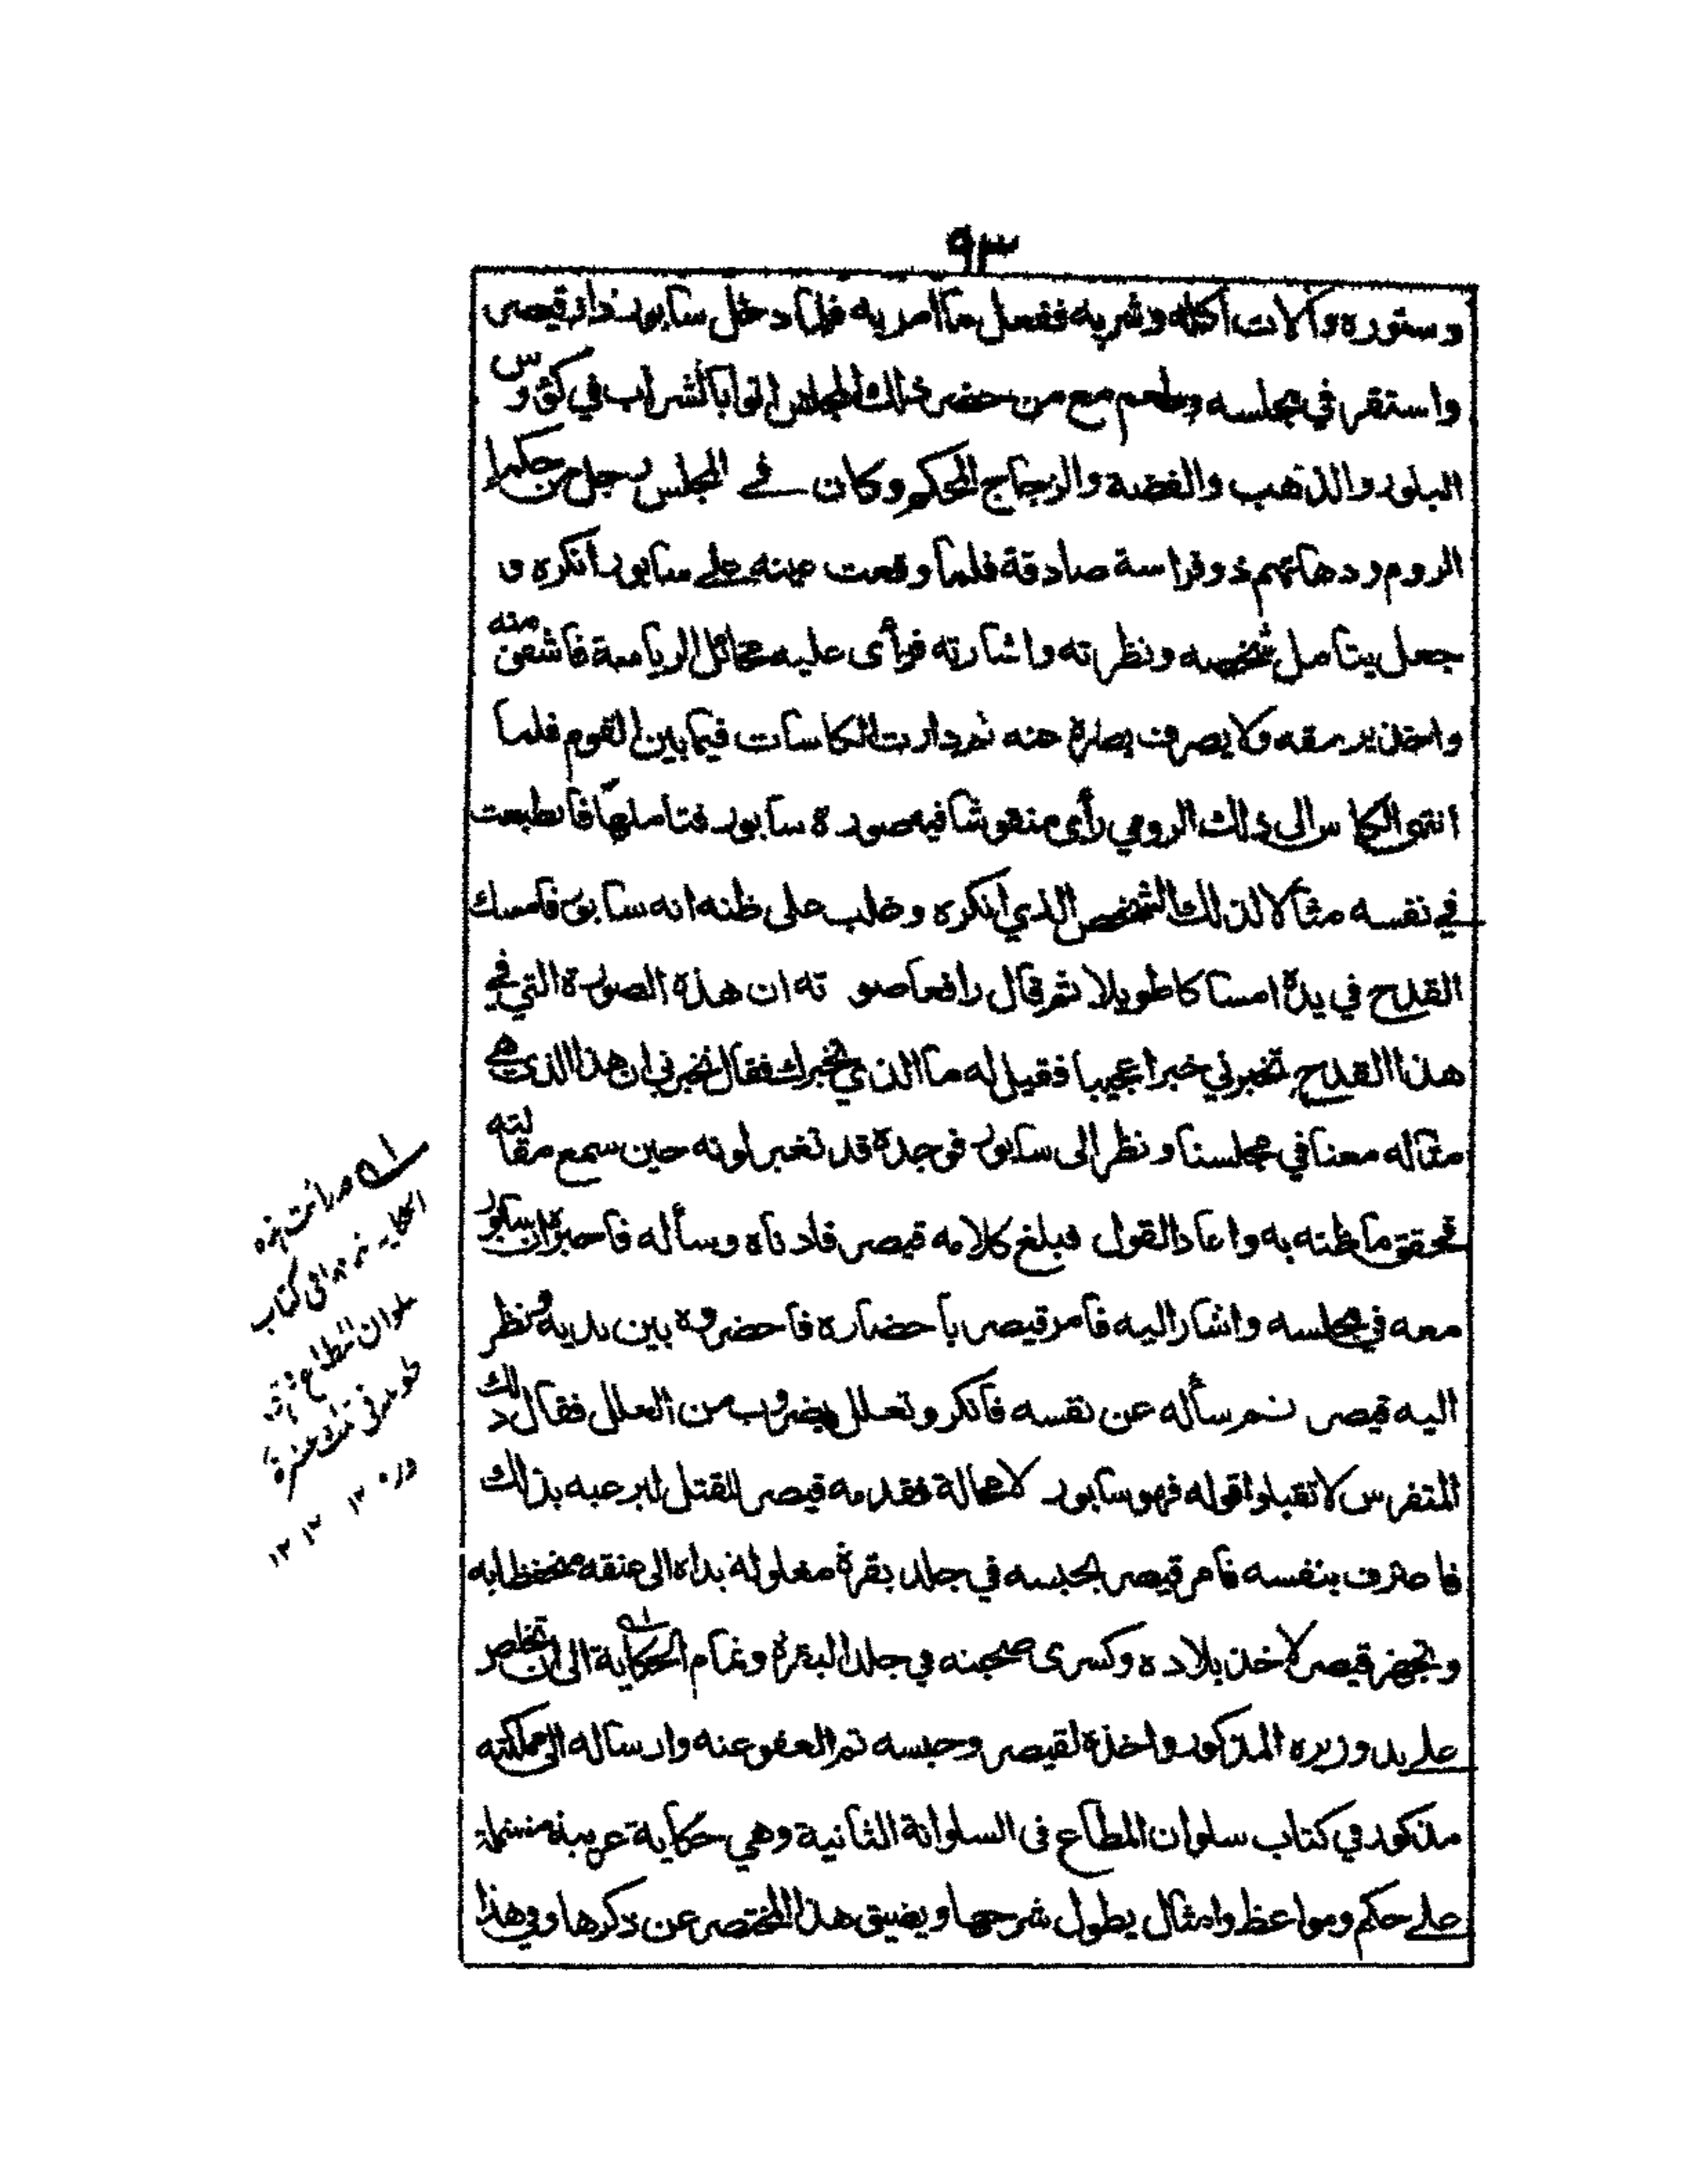 ٩٣
وستوره وآلات أكله وشربه ففعل ما امر به فلما دخل سابور دار قيصر
واستقر في مجلسه وطعم مع من حضر ذلك المجلس اتوا بالشراب في كئوس
البلور والذهب والفضة والزجاج المحكم وكان في المجلس رجل من حكما
الروم ودهاتهم ذو فراسة صادقة فلما وقعت عينه على سابور أنكره و
جعل يتأمل شخصه ونظراته واشارته فرأى عليه مخائل الرياسة منه
واخذ يرمقه ولا يصرف بصره عنه ثم دارت الكاسات فيما بين القوم فلما
انتهى الكاس الى ذلك الرومي رأى منقوشا فيه صورة سابور فتأملها فانطبعت
في نفسه مثالا لذلك الشخص الذي انكره وغلب على ظنه انه سابور فامسك
القدح في يده امساكا طويلا ثم قال رافعا صوته ان هذه الصورة التي في
هذا القدح تخبرني خبرا عجيبا فقيل له ما الذي تخبرك فقال تخبرني ان هذا الذي هي
مثاله معنا في مجلسنا ونظر الى سابور فوجده قد تغير لونه حين سمع مقالته
فحقق ما ظنه به واعاد القول فبلغ كلامه قيصر فادناه وسأله فاخبره ان سابور
معه في مجلسه واشار اليه فامر قيصر باحضاره فاحضروه بين يديه ونظر
اليه قيصر ثم سأله عن نفسه فأنكر وتعلل بضروب من العلل فقال ذلك
المتفرس لا تقبلوا قوله فهو سابور لا محالة فقدمه قيصر للقتل ليرعبه بذلك
فاعترف بنفسه فامر قيصر بحبسه في جلد بقرة مغلولة يداه الى عنقه محتفظا به
وتجهز قيصر لاخذ بلاده وكسرى صحبته في جلد البقرة وتمام الحكاية الى ان تخلص
على يد وزيره المذكور واخذه لقيصر وحبسه ثم العفو عنه وارساله الى مملكته
مذكور في كتاب سلوان المطاع فى السلوانة الثانية وهي حكاية غريبة مشتملة
على حكم ومواعظ وامثال يطول شرحها ويضيق هذا المختصر عن ذكرها وفي هذا
الحكاية
كتاب
سلوان المطاع
١٢ ١٢ ١٢